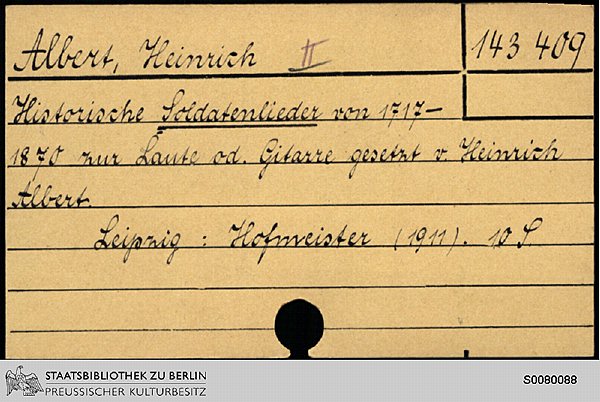 Albert, Heinrich II
143 409
Historische Soldatenlieder von 1717-
1870 zur Laute od. Gitarre gesetzt v. Heinrich
Albert.
Leipzig : Hofmeister (1911). 10 S
STAATSBIBLIOTHEK ZU BERLIN
PREUSSISCHER KULTURBESITZ
S0080088